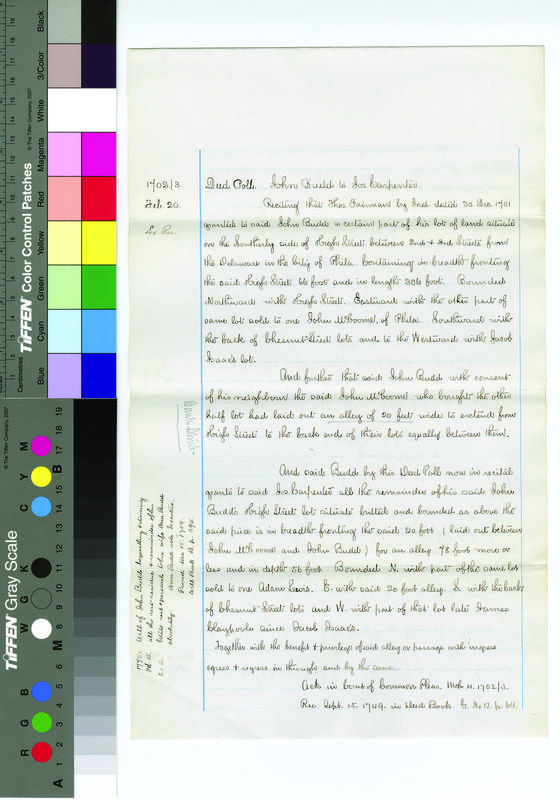 1702/3.
Feb. 20.
Deed Poll. John Budd to Jos Carpenter.
Reciting that Thos Fairman by Ind. dated 30 Dec. 1701
granted to said John Budd a certain part of his lot of land situate
on the Southerly side of High Street between 2nd & 3rd Streets from
the Delaware in the City of Phila. Containing in breadth fronting
the said High Street 66 foot and in length 306 foot. Bounded
Northward with High Street. Eastward with the other part of
same lot sold to one John McComb, of Phila. Southward with
the back of Chesnut Street lots and to the Westward with Jacob
Isaac's lot.
And further that said John Budd with consent
of his neighbour the said John McComb who bought the other
half lot had laid out an alley of 20 feet wide to extend from
High Street to the back ends of their lots equally between them.
And said Budd by this Deed Poll now in recital
grants to said Jos Carpenter all the remainder of his said John
Budd's High Street lots situate butted and bounded as above the
said piece is in breadth fronting the said 20 foot (laid out between
John McComb and John Budd) for an alley 78 foot more or
less and in depth 56 foot Bounded N. with part of the same lot
sold to one Adam Lewis. E. with said 20 foot alley. S. with the backs
of Chesnut Street lots and W. with part of that lot late James
Claypoole since Jacob Isaac's.
Together with the benefit & privilege of said alley or passage with ingress
egress & regress in through and by the same.
Ack in Court of Common Pleas. Mch 4. 1702/3.
Rec Sept. 15. 1749. in Deed Book G. No 12. p. 64.
Will of John Budd
all the rest residue & remainder of his
Estate real & personal to his wife Ann Budd
absolutely.
Ann Budd sole Executrix.
Proved
Will Book B. p.
TIFFEN Color Control Patches
© The Tiffen Company, 2007
Centimetres
Blue
Cyan
Green
Yellow
Red
Magenta
White
3/Color
Black
TIFFEN Gray Scale
© The Tiffen Company, 2007
R G B
W G K
C Y M
A 1 2 3 4 5 6 M 8 9 10 11 12 13 14 15 B 17 18 19